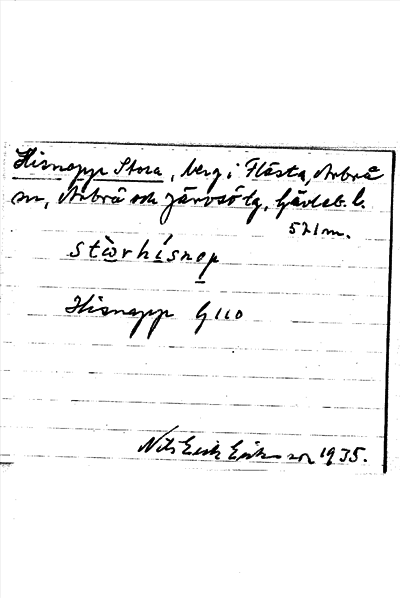 Hisnapp Stora, berg i Flästa, Arbrå
sn, Arbrå och Järvsö tg, Gävleb. l.
571 m.
stωrhísnop
Hisnapp G110
Nils Erik Eriksson 1935.